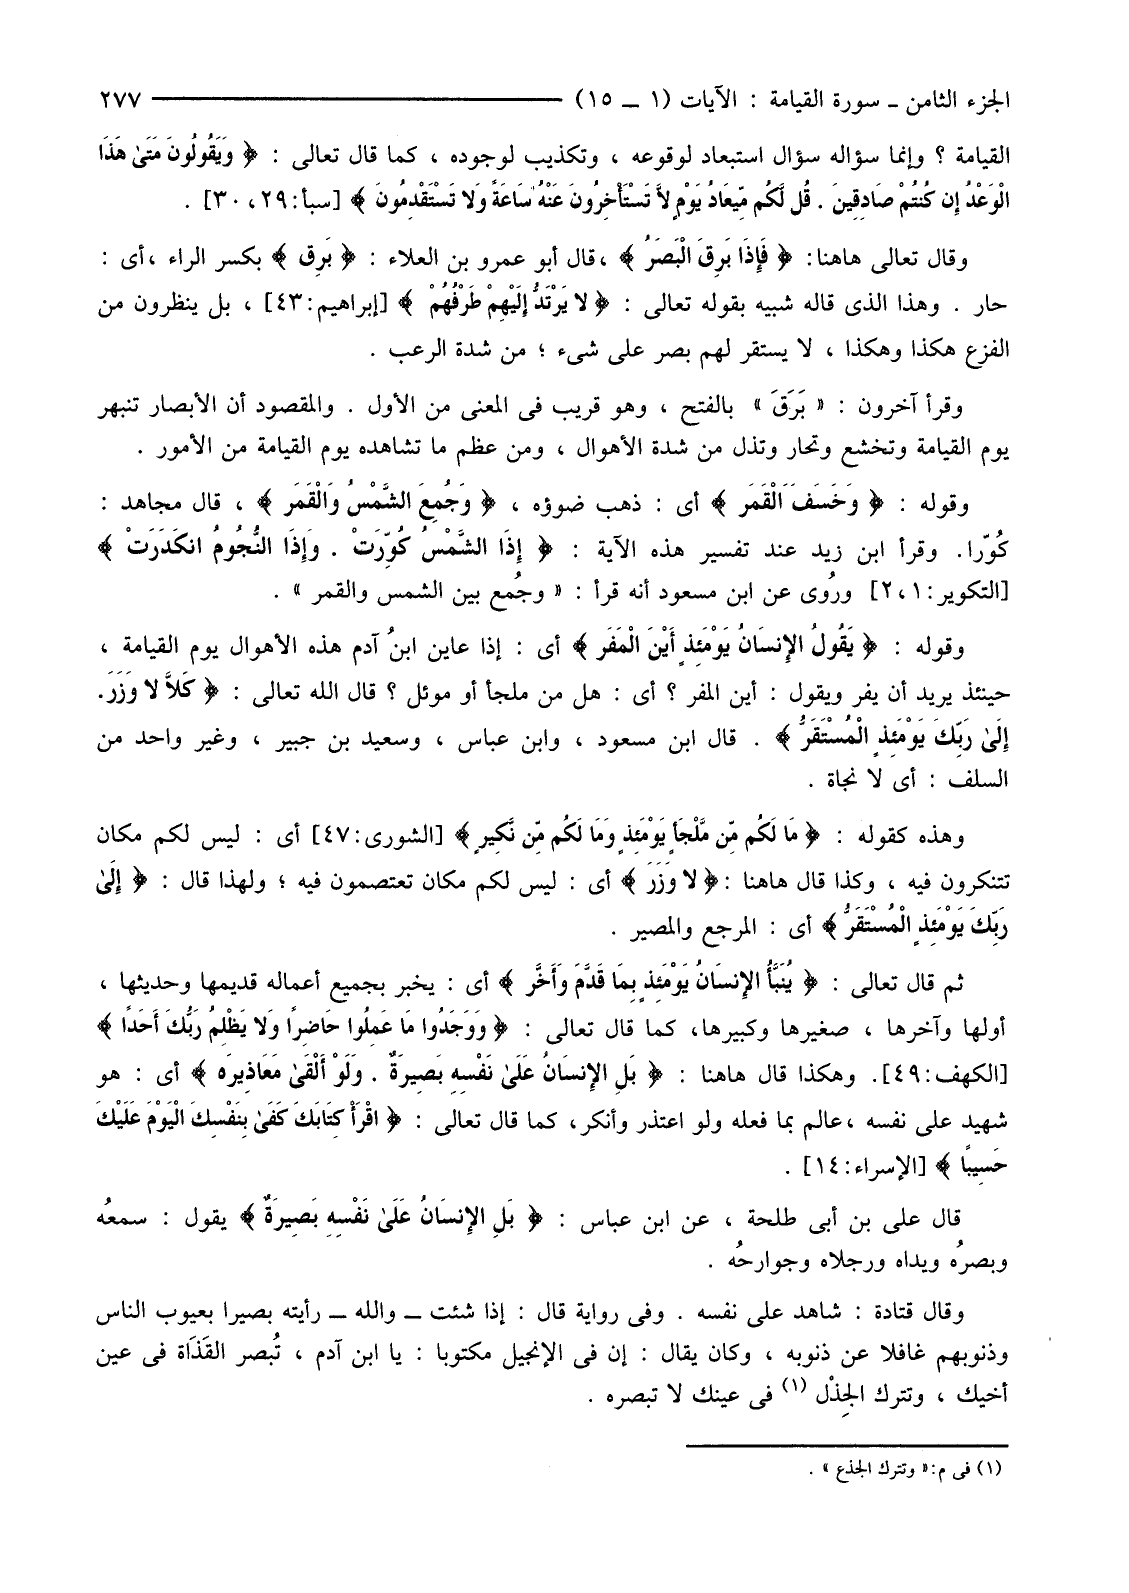 الجزء الثامن ـ سورة القيامة : الآيات (١ ـ ١٥) ٢٧٧
القيامة ؟ وإنما سؤاله سؤال استبعاد لوقوعه ، وتكذيب لوجوده ، كما قال تعالى : ﴿ وَيَقُولُونَ مَتَىٰ هَذَا
الْوَعْدُ إِن كُنتُمْ صَادِقِينَ . قُل لَّكُم مِّيعَادُ يَوْمٍ لاَّ تَسْتَأْخِرُونَ عَنْهُ سَاعَةً وَلا تَسْتَقْدِمُونَ ﴾ [سبأ:٢٩، ٣٠] .
وقال تعالى هاهنا: ﴿ فَإِذَا بَرِقَ الْبَصَرُ ﴾ ،قال أبو عمرو بن العلاء : ﴿ بَرِق ﴾ بكسر الراء ،أى :
حار . وهذا الذى قاله شبيه بقوله تعالى : ﴿ لا يَرْتَدُّ إِلَيْهِمْ طَرْفُهُمْ ﴾ [إبراهيم:٤٣] ، بل ينظرون من
الفزع هكذا وهكذا ، لا يستقر لهم بصر على شىء ؛ من شدة الرعب .
وقرأ آخرون : « بَرَقَ » بالفتح ، وهو قريب فى المعنى من الأول . والمقصود أن الأبصار تنبهر
يوم القيامة وتخشع وتحار وتذل من شدة الأهوال ، ومن عظم ما تشاهده يوم القيامة من الأمور .
وقوله : ﴿ وَخَسَفَ الْقَمَر ﴾ أى : ذهب ضوؤه ، ﴿ وَجُمِعَ الشَّمْسُ وَالْقَمَر ﴾ ، قال مجاهد :
كُوّرا. وقرأ ابن زيد عند تفسير هذه الآية : ﴿ إِذَا الشَّمْسُ كُوِّرَتْ . وَإِذَا النُّجُومُ انكَدَرَتْ ﴾
[التكوير:١، ٢] ورُوى عن ابن مسعود أنه قرأ : « وجُمع بين الشمس والقمر » .
وقوله : ﴿ يَقُولُ الإِنسَانُ يَوْمَئِذٍ أَيْنَ الْمَفَر ﴾ أى : إذا عاين ابنُ آدم هذه الأهوال يوم القيامة ،
حينئذ يريد أن يفر ويقول : أين المفر ؟ أى : هل من ملجأ أو موئل ؟ قال الله تعالى : ﴿ كَلاَّ لا وَزَرَ.
إِلَىٰ رَبِّكَ يَوْمَئِذٍ الْمُسْتَقَرُّ ﴾ . قال ابن مسعود ، وابن عباس ، وسعيد بن جبير ، وغير واحد من
السلف : أى لا نجاة .
وهذه كقوله : ﴿ مَا لَكُم مِّن مَّلْجَأٍ يَوْمَئِذٍ وَمَا لَكُم مِّن نَّكِيرٍ ﴾ [الشورى:٤٧] أى : ليس لكم مكان
تتنكرون فيه ، وكذا قال هاهنا :﴿ لا وَزَرَ ﴾ أى : ليس لكم مكان تعتصمون فيه ؛ ولهذا قال : ﴿ إِلَىٰ
رَبِّكَ يَوْمَئِذٍ الْمُسْتَقَرُّ ﴾ أى : المرجع والمصير .
ثم قال تعالى : ﴿ يُنَبَّأُ الإِنسَانُ يَوْمَئِذٍ بِمَا قَدَّمَ وَأَخَّر ﴾ أى : يخبر بجميع أعماله قديمها وحديثها ،
أولها وآخرها ، صغيرها وكبيرها، كما قال تعالى : ﴿ وَوَجَدُوا مَا عَمِلُوا حَاضِرًا وَلا يَظْلِمُ رَبُّكَ أَحَدًا ﴾
[الكهف:٤٩]. وهكذا قال هاهنا : ﴿ بَلِ الإِنسَانُ عَلَىٰ نَفْسِهِ بَصِيرَةٌ . وَلَوْ أَلْقَىٰ مَعَاذِيرَه ﴾ أى : هو
شهيد على نفسه ،عالم بما فعله ولو اعتذر وأنكر، كما قال تعالى : ﴿ اقْرَأْ كِتَابَكَ كَفَىٰ بِنَفْسِكَ الْيَوْمَ عَلَيْكَ
حَسِيبًا ﴾ [الإسراء:١٤] .
قال على بن أبى طلحة ، عن ابن عباس : ﴿ بَلِ الإِنسَانُ عَلَىٰ نَفْسِهِ بَصِيرَةٌ ﴾ يقول : سمعُه
وبصرُه ويداه ورجلاه وجوارحُه .
وقال قتادة : شاهد على نفسه . وفى رواية قال : إذا شئت ـ والله ـ رأيته بصيرا بعيوب الناس
وذنوبهم غافلا عن ذنوبه ، وكان يقال : إن فى الإنجيل مكتوبا : يا ابن آدم ، تُبصر القَذَاة فى عين
أخيك ، وتترك الجِذْل (١) فى عينك لا تبصره .
(١) فى م:« وتترك الجذع » .